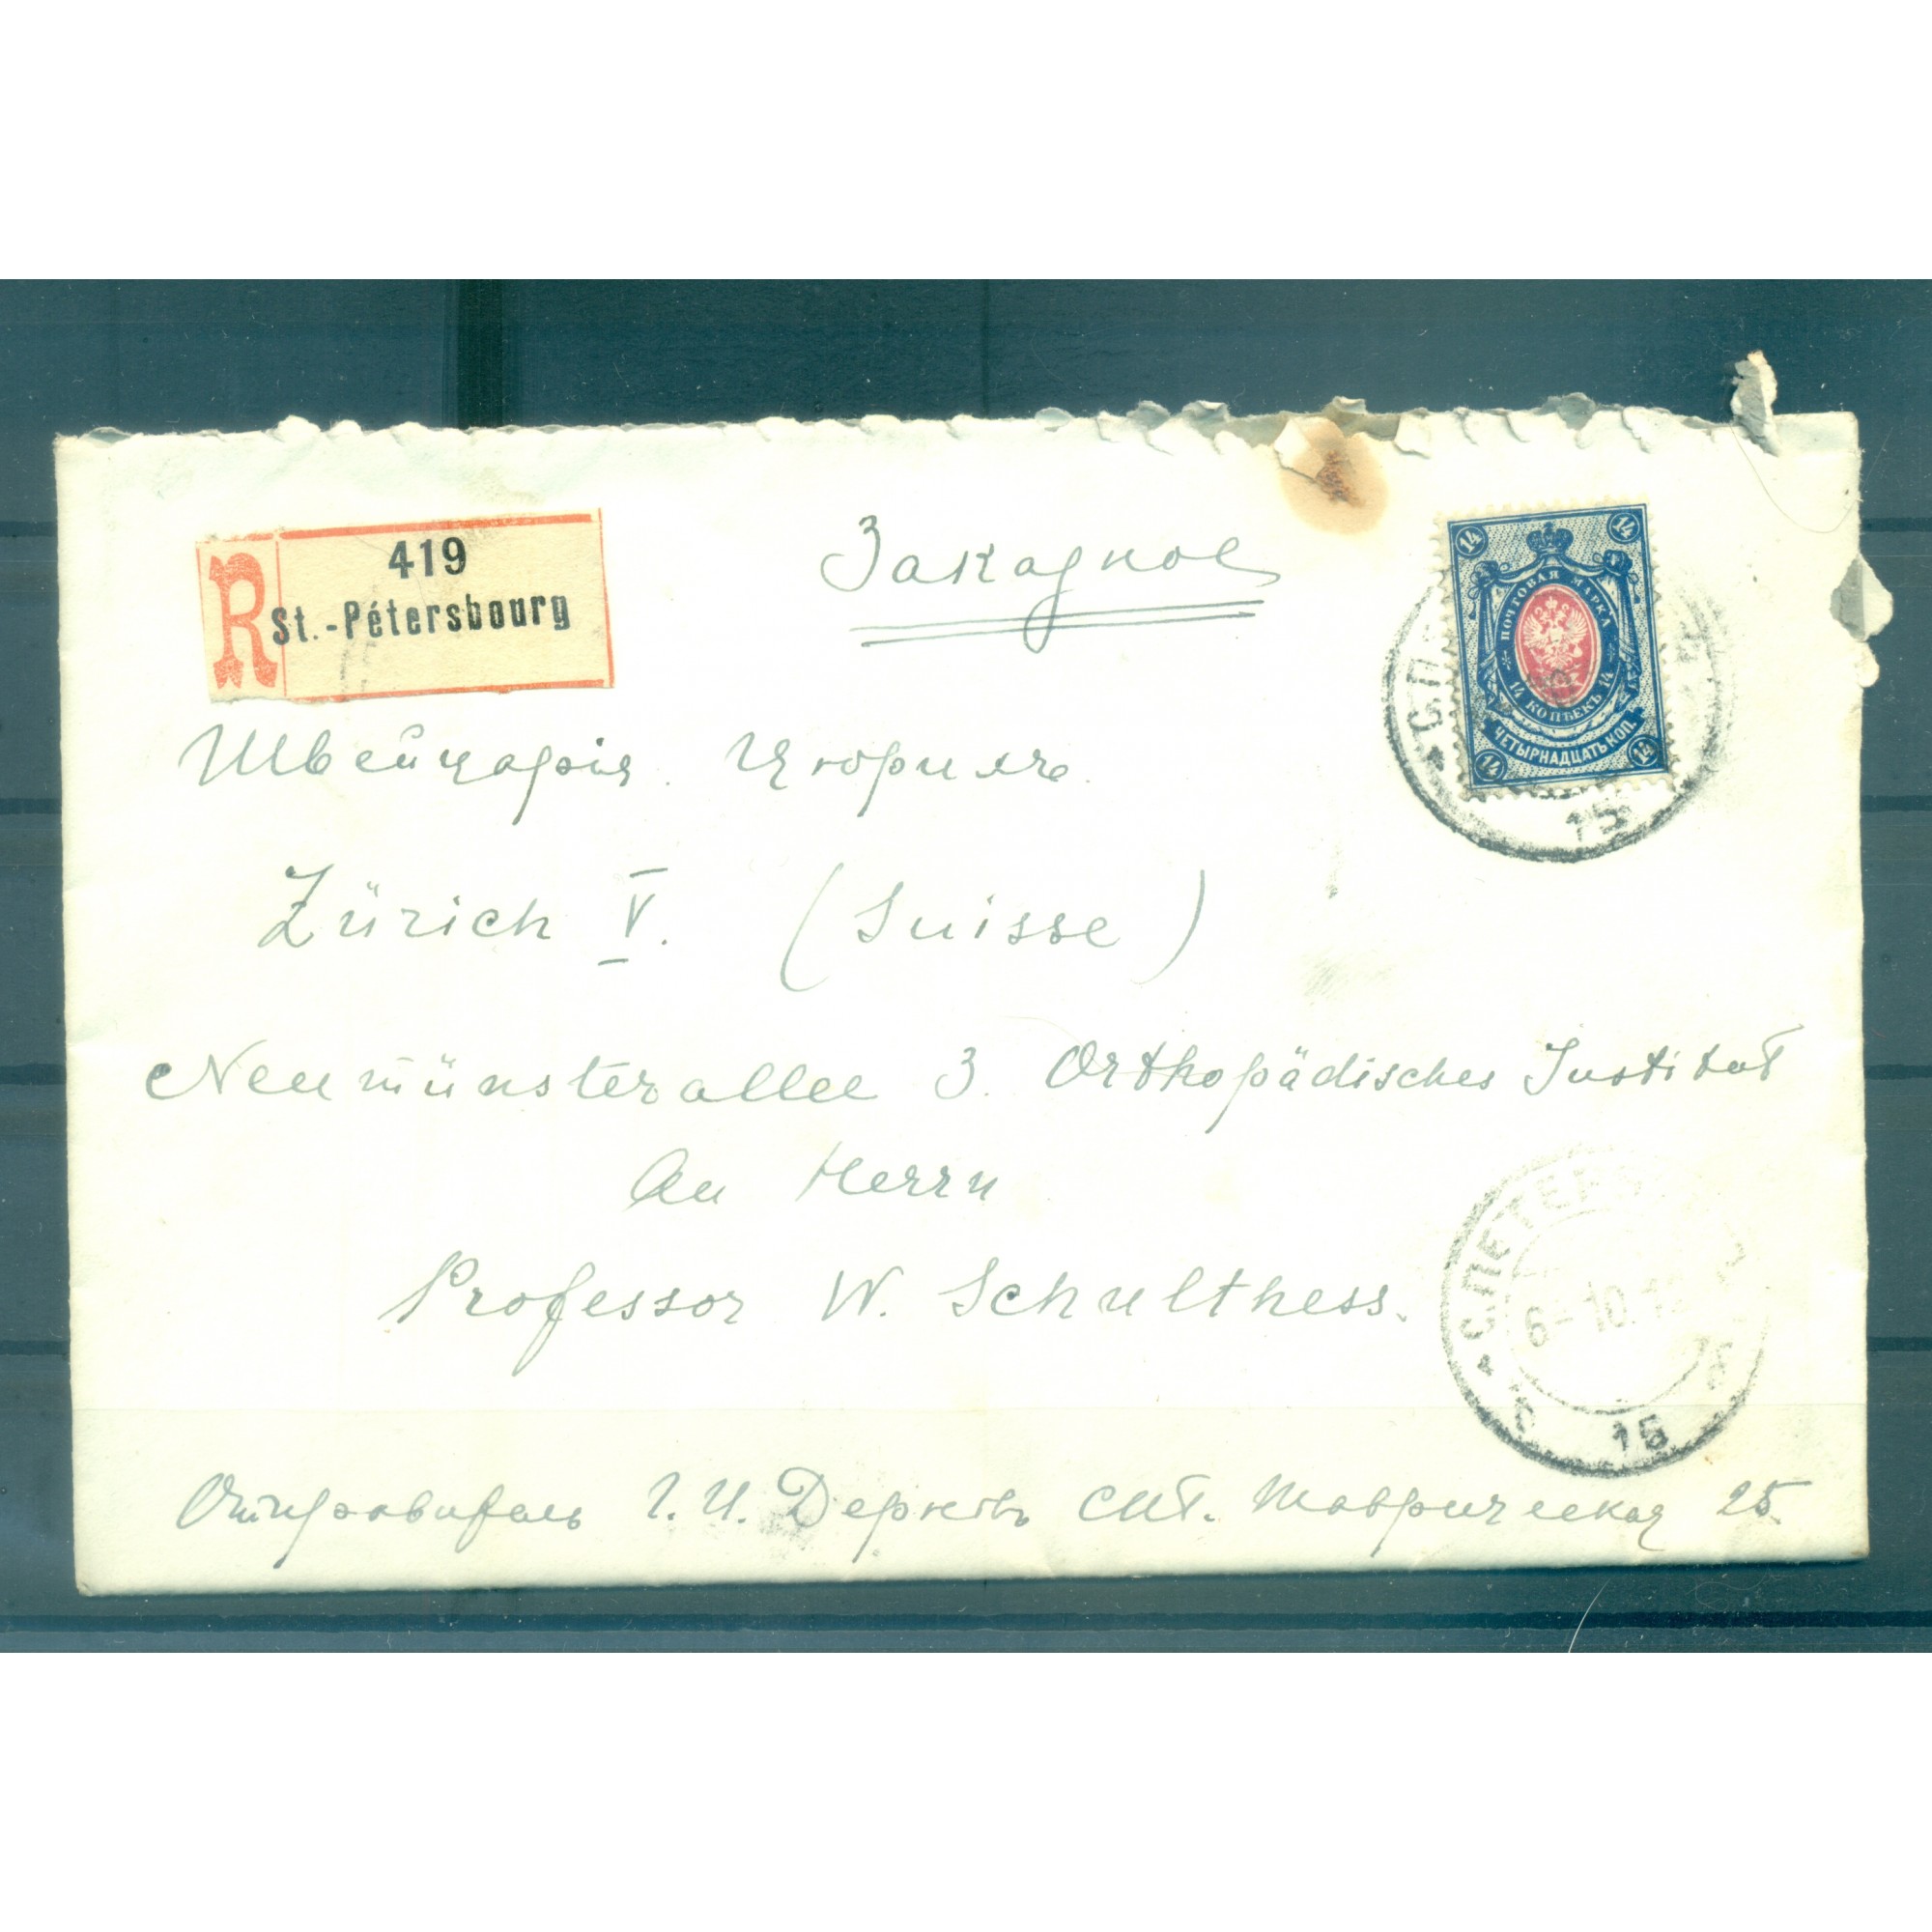 419
R St.-Pétersbourg
Заказное
14 14
ПОЧТОВАЯ МАРКА
14 КОПѢЕКЪ 14
ЧЕТЫРНАДЦАТЬ КОП.
14 14
С.П.
15
Швейцарія. Цюрихъ.
Zürich V. (Suisse)
Neumünsterallee 3. Orthopädisches Institut
An Herrn
Professor W. Schulthess.
С.ПЕТЕРБ
6-10.1
15
Отправитель Г. И. СПБ. Таврическая 25.